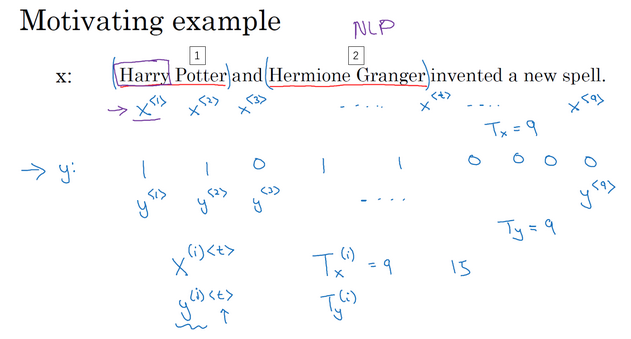 Motivating example
NLP
1 2
x: (Harry Potter) and (Hermione Granger) invented a new spell.
→ x<1> x<2> x<3> ..... x<t> .... x<9>
Tx = 9
→ y: 1 1 0 1 1 0 0 0 0
y<1> y<2> y<3> .... y<9>
Ty = 9
X(i)<t> Tx(i) = 9 15
y(i)<t> Ty(i)
↑